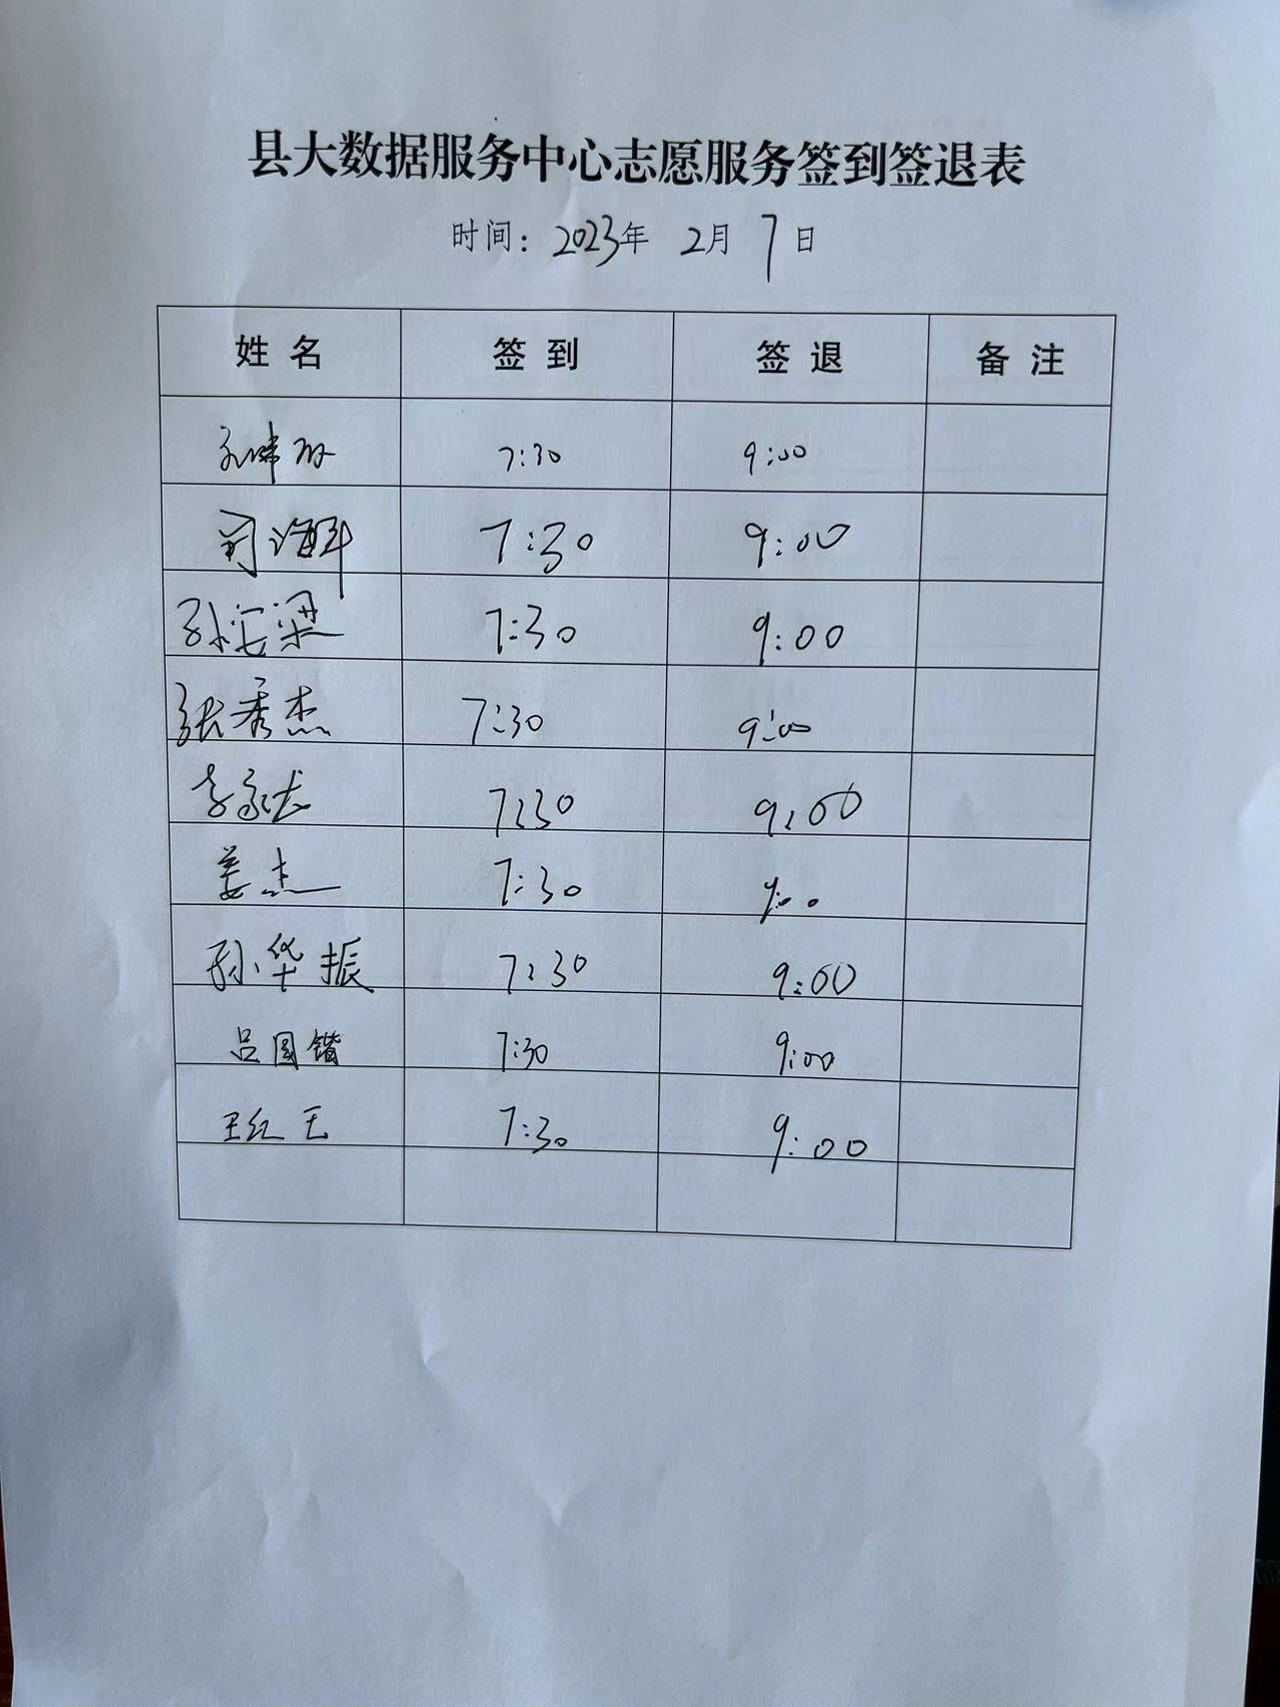 县大数据服务中心志愿服务签到签退表
时间：2023年 2月 7日
姓名 签到 签退 备注
7:30 9:00
7:30 9:00
孙安梁 7:30 9:00
张秀杰 7:30 9:00
李永龙 7:30 9:00
姜杰 7:30 9:00
孙华振 7:30 9:00
吕国锴 7:30 9:00
王红玉 7:30 9:00